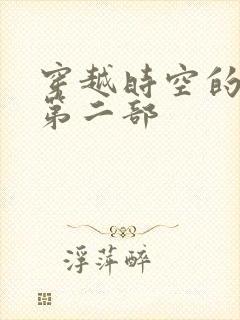 穿越時空的
第二部
浮萍醉